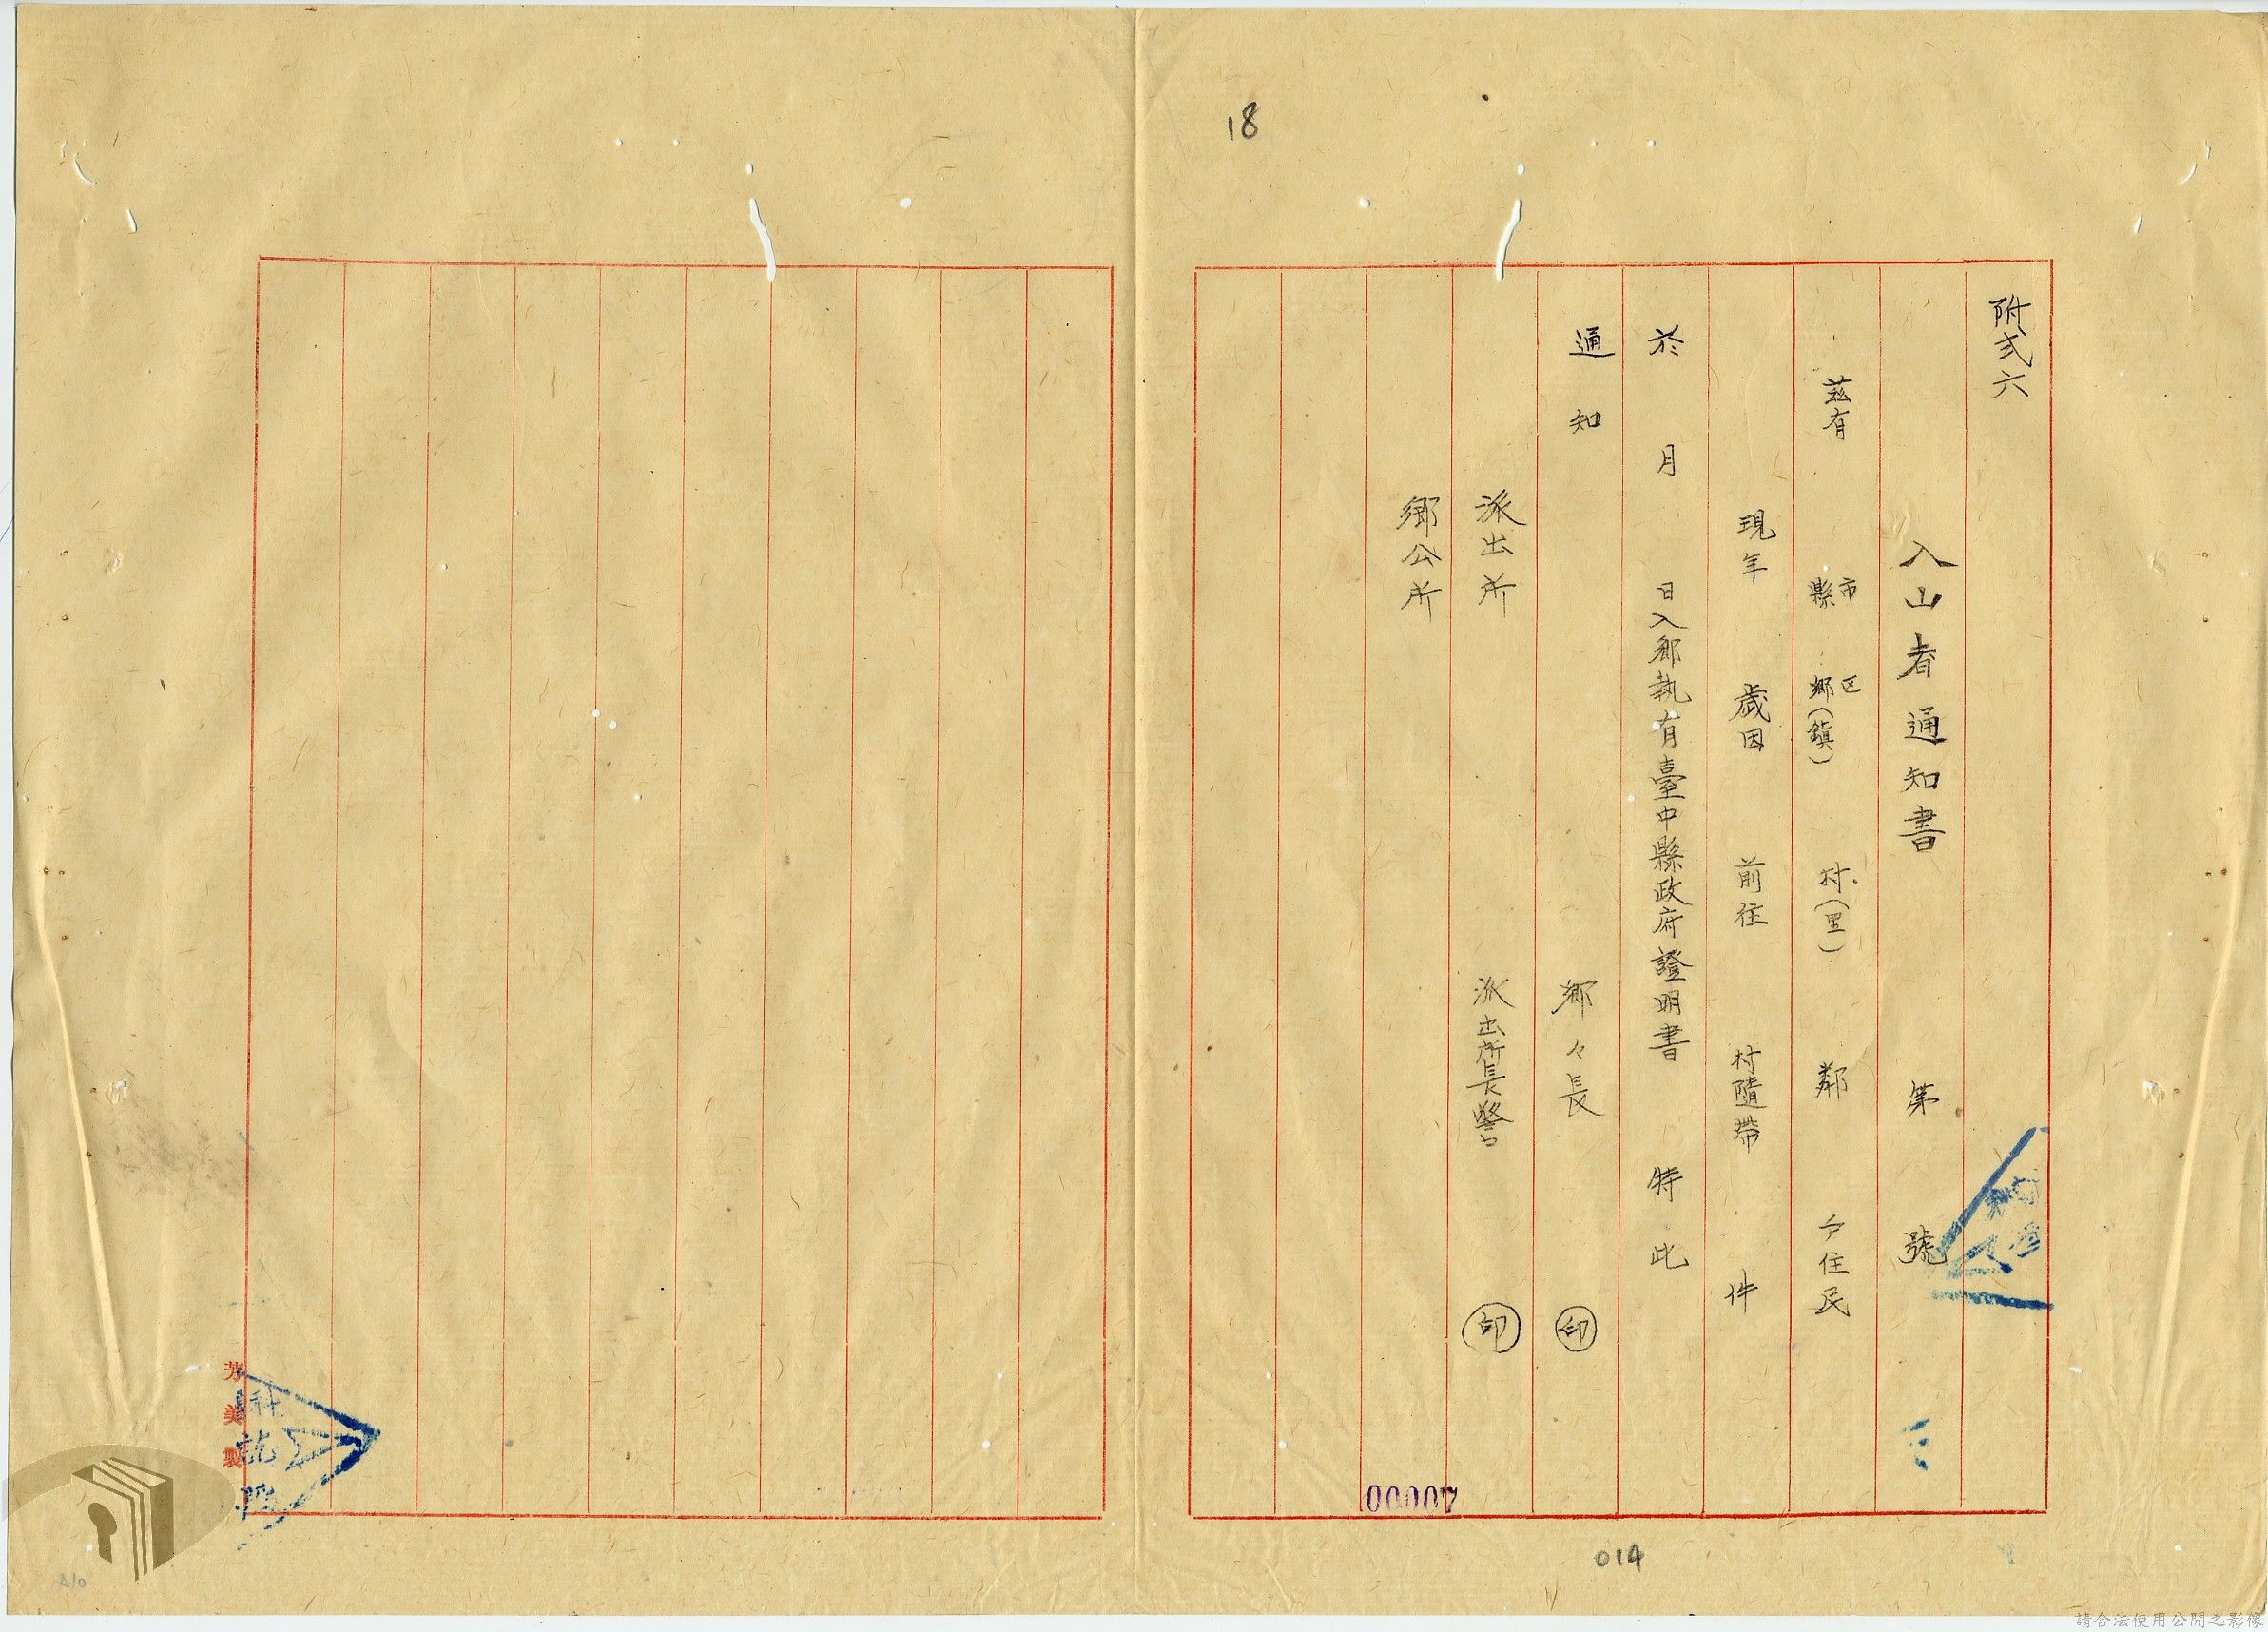 18
附式六
入山者通知書 第 號
茲有 市縣 区鄉(鎮) 村(里) 鄰 戶住民
現年 歲因 前往 村隨帶 件
於 月 日入鄉執有臺中縣政府證明書 特此
通知
鄉々長 印
派出所 派出所長警 印
鄉公所
00007
014
芳美製
請合法使用公開之影像